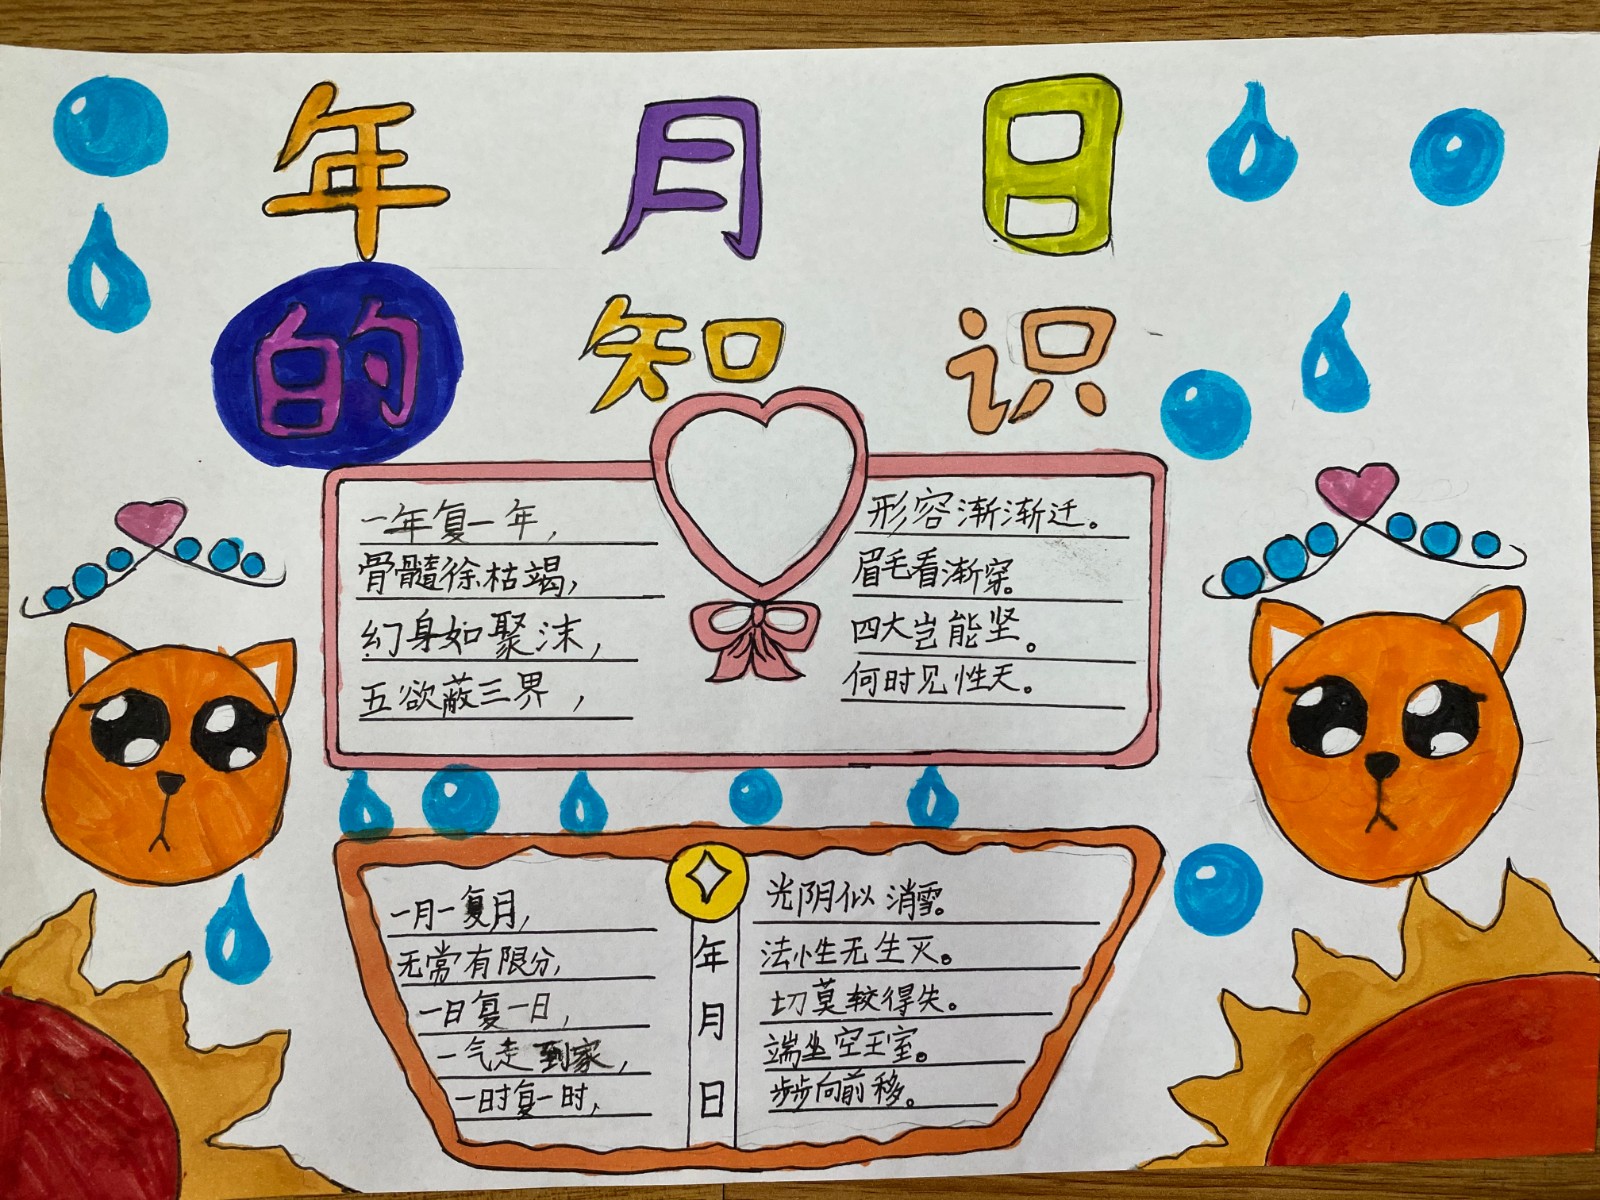 年月日
的知识
一年复一年,
骨髓徐枯竭,
幻身如聚沫,
五欲蔽三界,
形容渐渐迁。
眉毛看渐穿。
四大岂能坚。
何时见性天。
一月一复月,
无常有限分,
一日复一日,
一气走到家,
一时复一时,
年
月
日
光阴似消雪。
法性无生灭。
切莫较得失。
端坐空王室。
步步向前移。